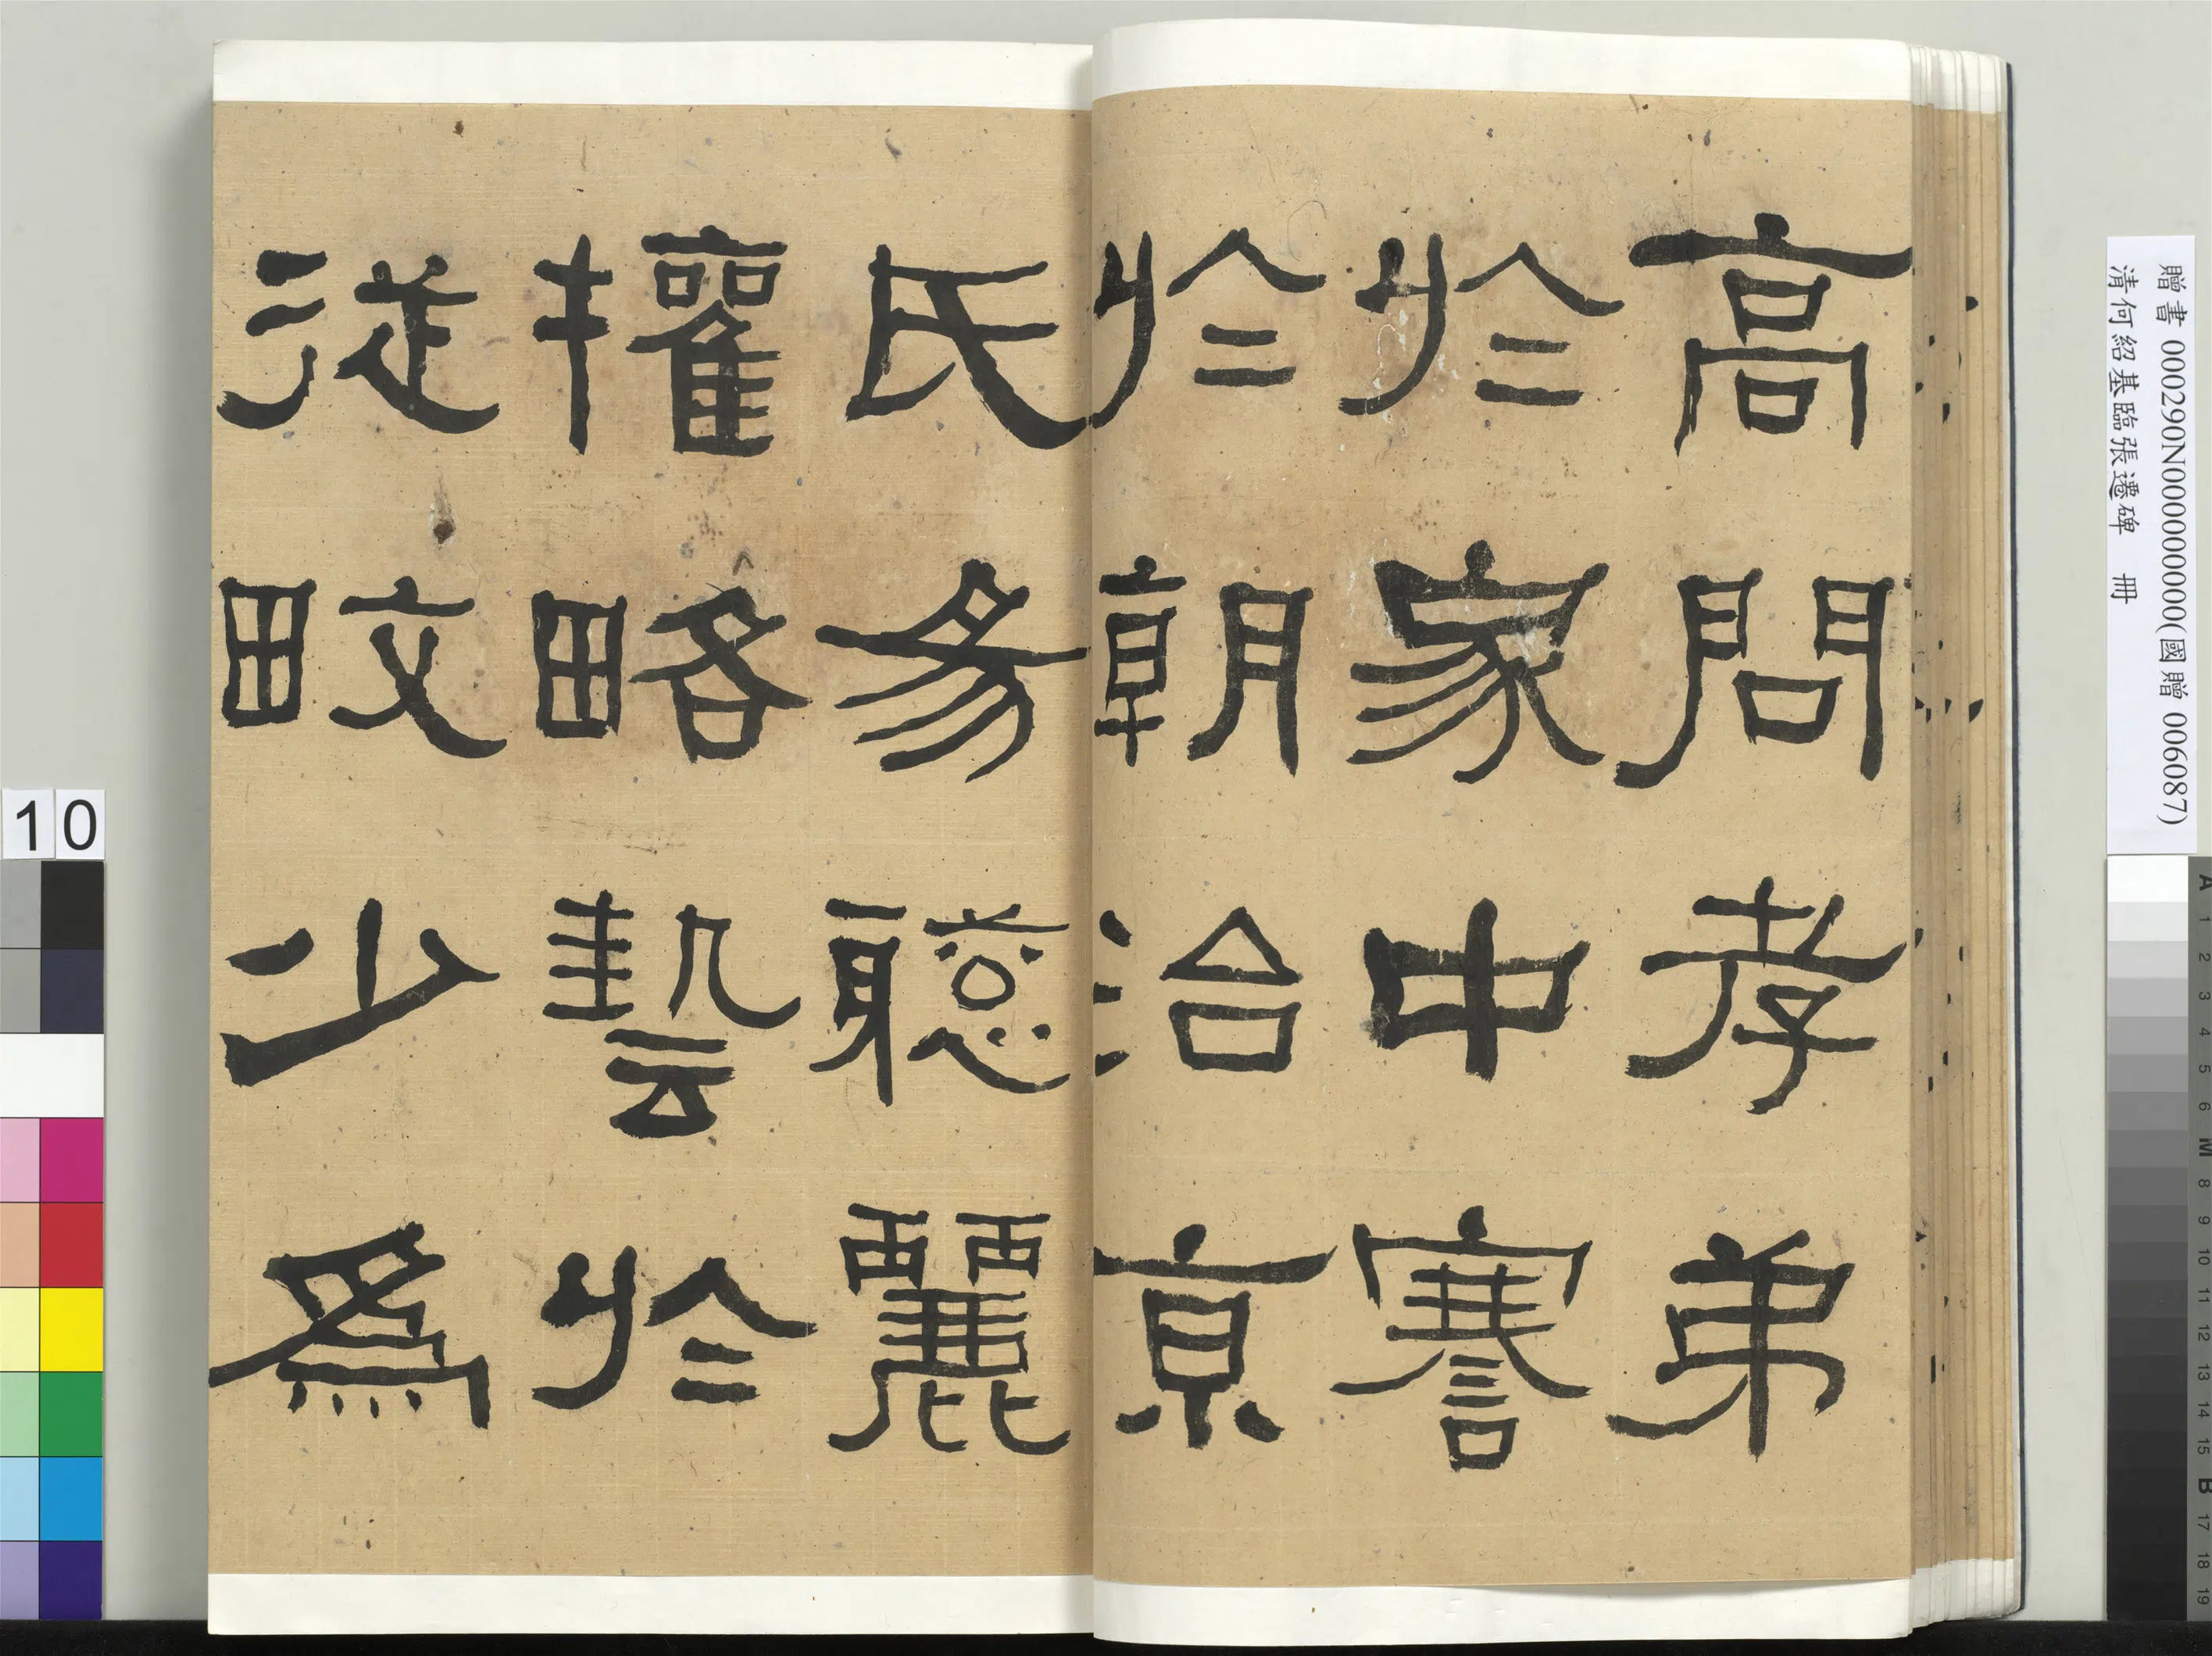 高問孝弟
於家中謇
於朝治京
氏易聰麗
權略藝於
從畋少為
贈書 000290N000000000(國贈 006087)
清何紹基臨張遷碑 冊
10
A 1 2 3 4 5 6 M 8 9 10 11 12 13 14 15 B 17 18 19